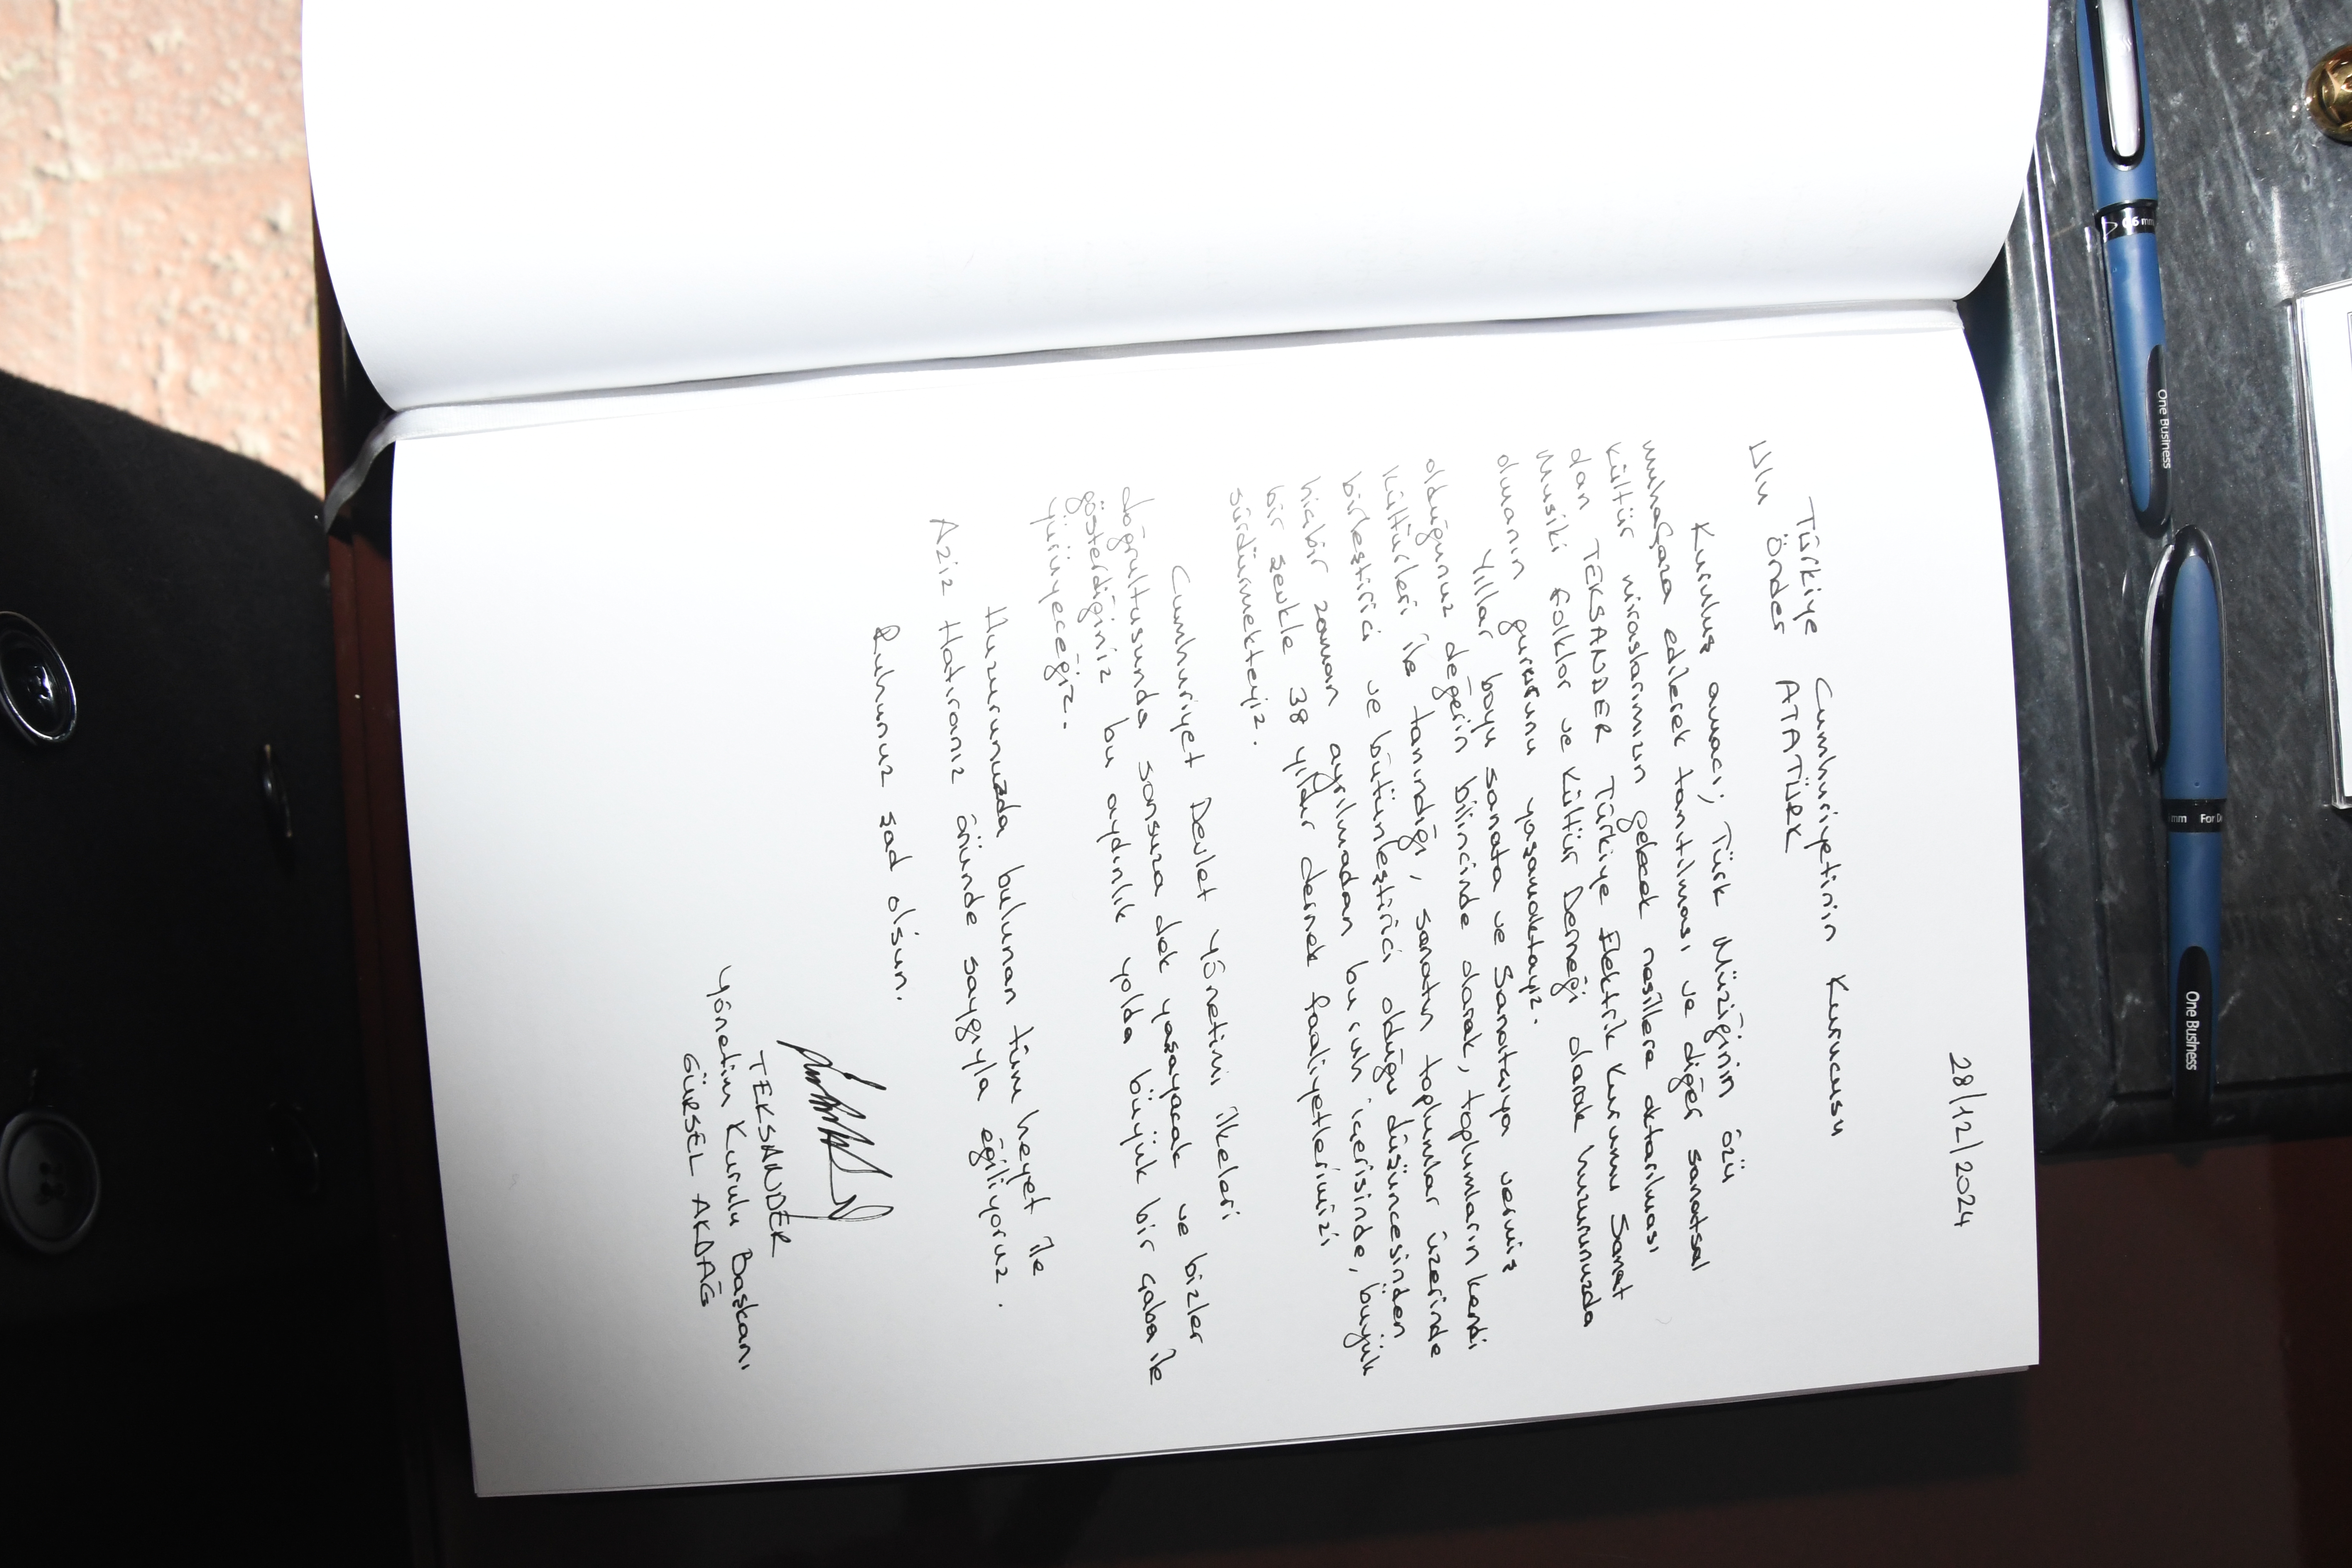 28/12/2024
Türkiye Cumhuriyetinin Kurucusu
Ulu Önder ATATÜRK
Kuruluş amacı; Türk Müziğinin özü
muhafaza edilerek tanıtılması ve diğer sanatsal
kültür miraslarımızın gelecek nesillere aktarılması
olan TEKSANDER Türkiye Elektrik Kurumu Sanat
Musiki Folklor ve Kültür Derneği olarak huzurunuzda
olmanın gururunu yaşamaktayız.
Yıllar boyu sanata ve Sanatçıya vermiş
olduğunuz değerin bilincinde olarak, toplumların kendi
kültürleri ile tanındığı, sanatın toplumlar üzerinde
birleştirici ve bütünleştirici olduğu düşüncesinden
hiçbir zaman ayrılmadan bu ruh içerisinde, büyük
bir şevkle 38 yıldır dernek faaliyetlerimizi
sürdürmekteyiz.
Cumhuriyet Devlet Yönetimi ilkeleri
doğrultusunda sonsuza dek yaşayacak ve bizler
gösterdiğiniz bu aydınlık yolda büyük bir çaba ile
yürüyeceğiz.
Huzurunuzda bulunan tüm heyet ile
Aziz Hatıranız önünde saygıyla eğiliyoruz.
Ruhunuz şad olsun.
TEKSANDER
Yönetim Kurulu Başkanı
GÜRSEL AKDAĞ
0.6 mm
One Business
mm For D
One Business